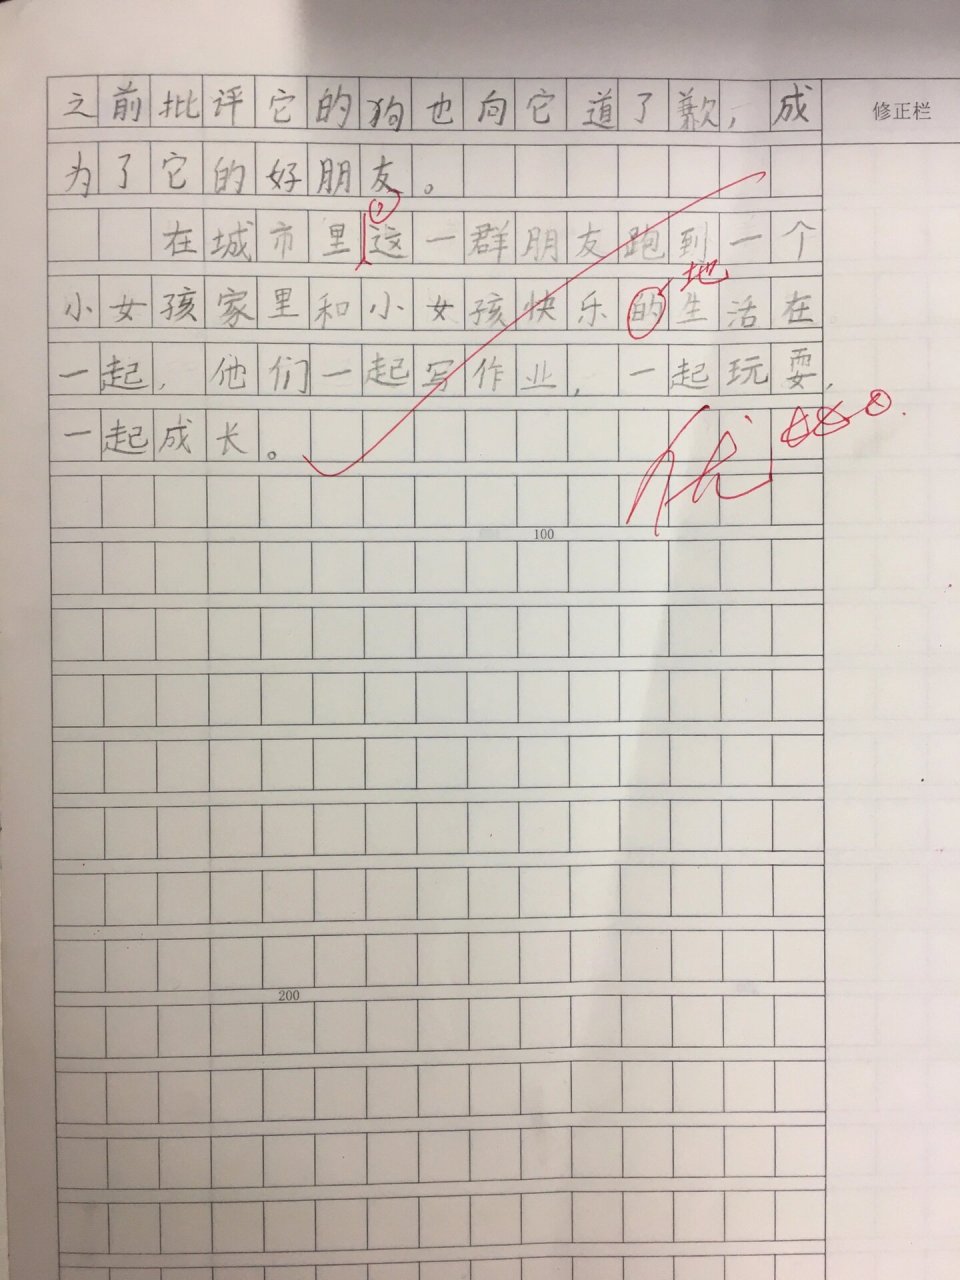 之前批评它的狗也向它道了歉，成
修正栏
为了它的好朋友。
在城市里这一群朋友跑到一个
地
小女孩家里和小女孩快乐的生活在
一起，他们一起写作业，一起玩耍，
一起成长。
优
100
200